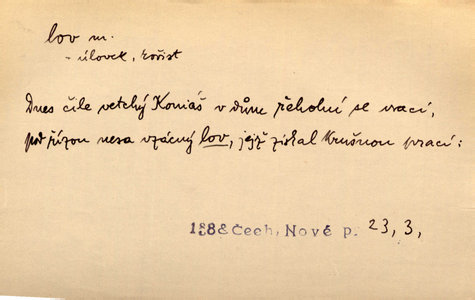 lov m.
- úlovek, kořist
Dnes čile vetchý Koniáš v dům řeholní se vrací,
pod řízou nesa vzácný lov, jejž získal krušnou prací:
1888 Čech, Nové p. 23, 3,